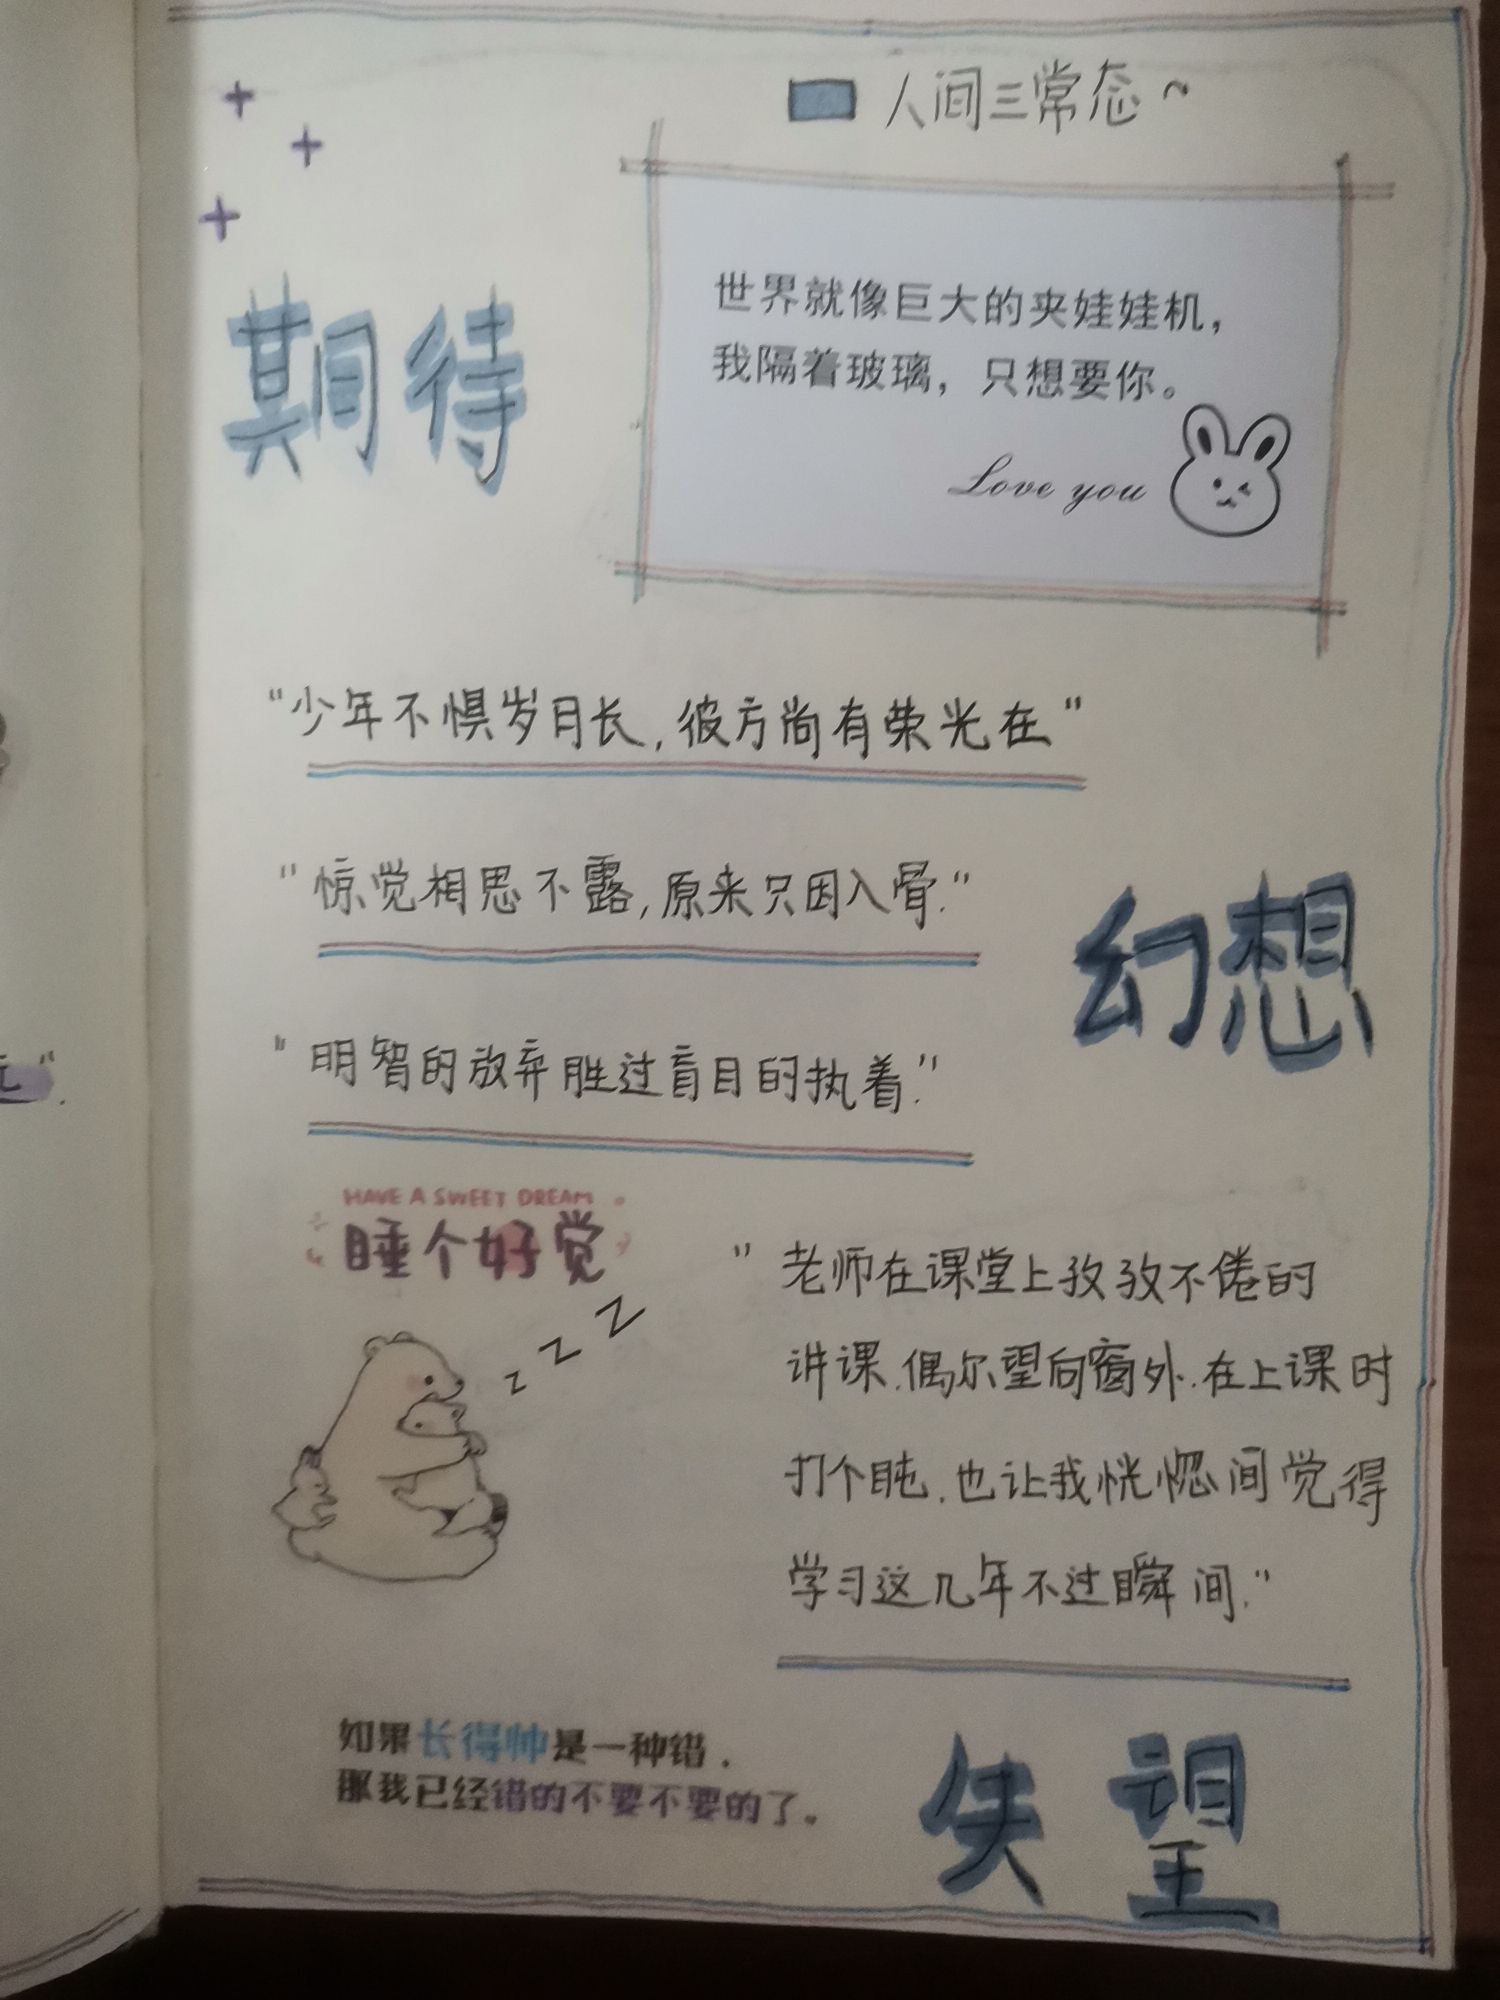 人间三常态~
期待
世界就像巨大的夹娃娃机，
我隔着玻璃，只想要你。
Love you
"少年不惧岁月长，彼方尚有荣光在"
"惊觉相思不露，原来只因入骨."
幻想
"明智的放弃胜过盲目的执着."
HAVE A SWEET DREAM
睡个好觉
z z Z
"老师在课堂上孜孜不倦的
讲课.偶尔望向窗外.在上课时
打个盹.也让我恍惚间觉得
学习这几年不过瞬间."
如果长得帅是一种错.
那我已经错的不要不要的了。
失望